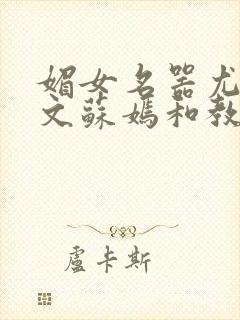 媚女名器尤
文蘇媽和教
盧卡斯